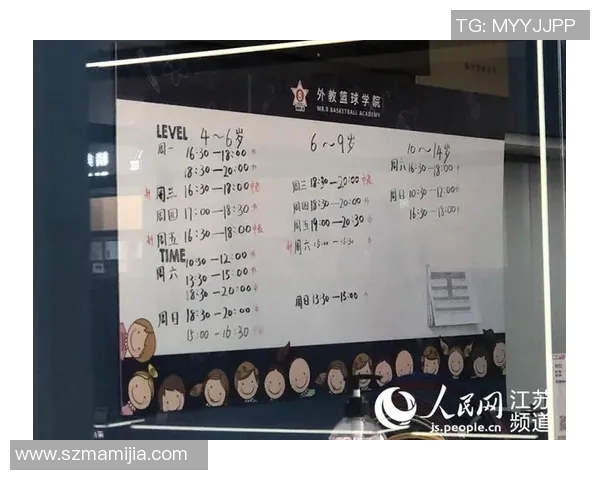 TG: MYYJJPP
外教篮球学院
MR.B BASKETBALL ACADEMY
LEVEL 4～6岁 6～9岁 10～14岁
周一 16:30—18:00
18:30—20:00
周三 16:30—18:00 周三 18:30—20:00 周六 16:30—18:00
周四 17:00—18:30 周四 18:30—20:00 周日 10:30—12:00
周五 16:30—18:00 周五 19:00—20:30 16:30—18:00
TIME 10:30—12:00 周六 15:00—16:30
周六 13:30—15:00
18:30—20:00
周日 18:30—20:00 周日 13:30—15:00
15:00—16:30
人民网 江苏频道
js.people.cn
www.szmamijia.com